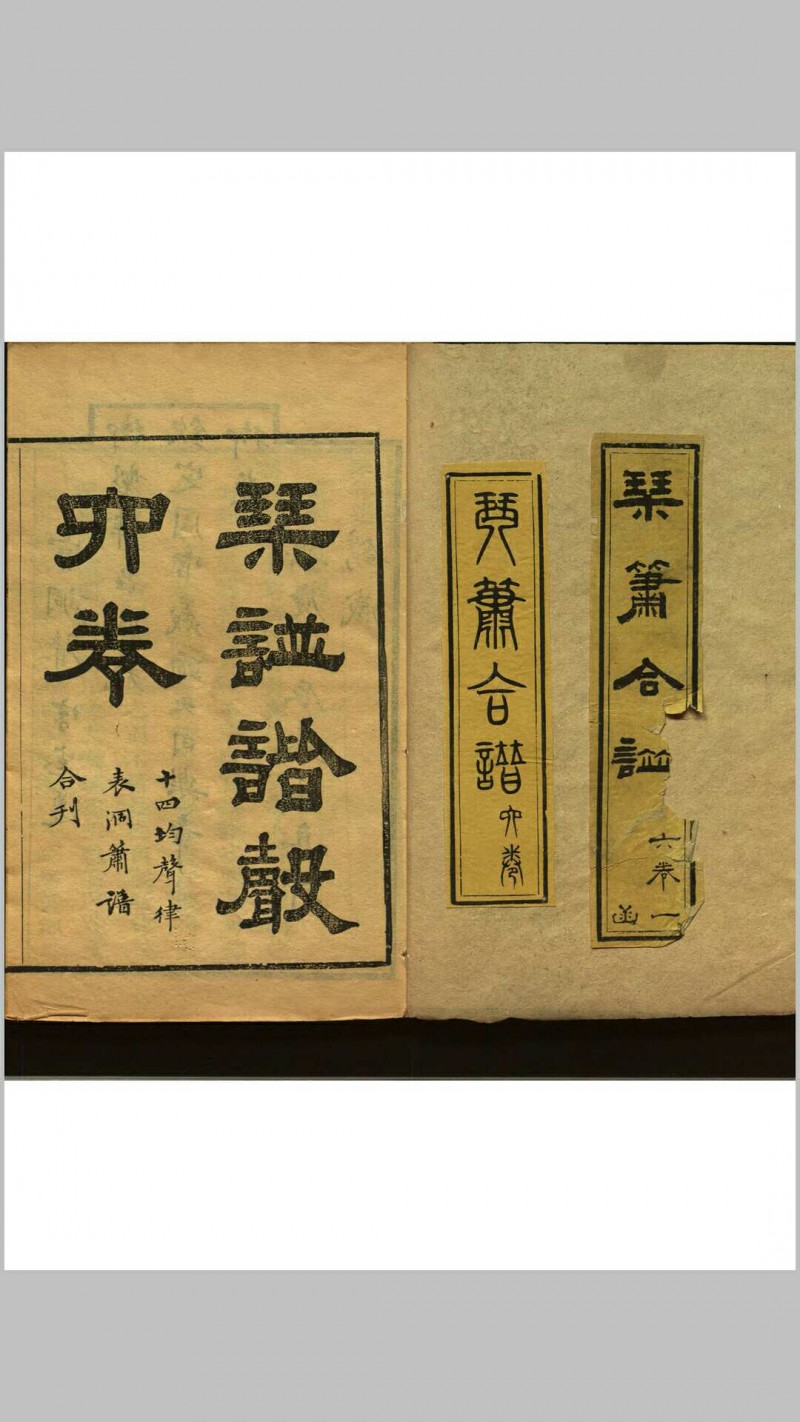 琹簫合諩
六卷一
函
琴簫合譜 卯卷
琹諩諧聲
卯卷
十四均聲律
表洞簫譜
合刊